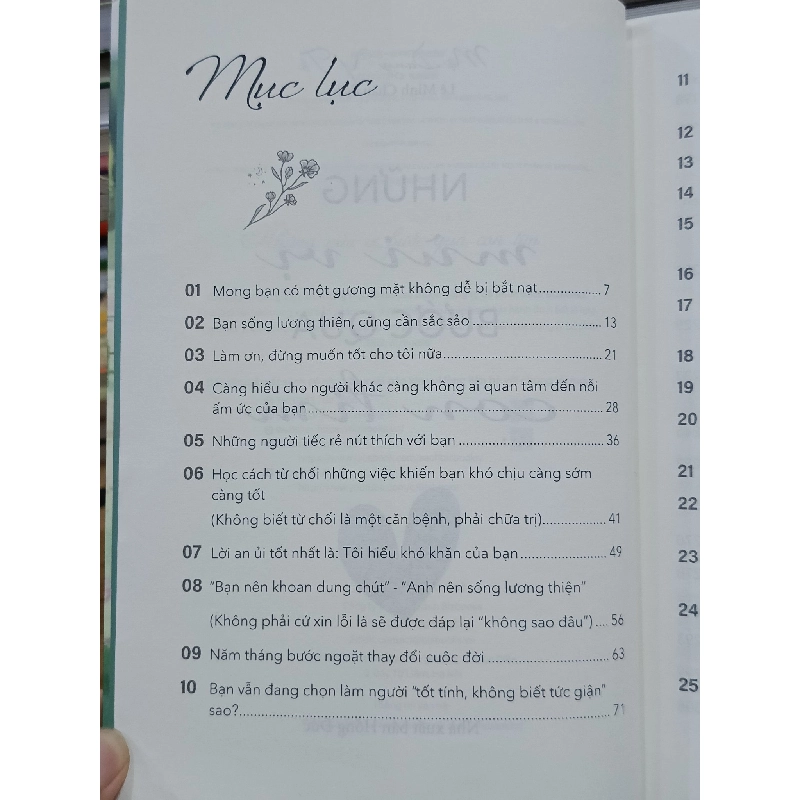 Mục lục
01 Mong bạn có một gương mặt không dễ bị bắt nạt.................. 7
02 Bạn sống lương thiện, cũng cần sắc sảo .................................. 13
03 Làm ơn, đừng muốn tốt cho tôi nữa.......................................... 21
04 Càng hiểu cho người khác càng không ai quan tâm đến nỗi
ấm ức của bạn............................................................................. 28
05 Những người tiếc rẻ nút thích với bạn ...................................... 36
06 Học cách từ chối những việc khiến bạn khó chịu càng sớm
càng tốt
(Không biết từ chối là một căn bệnh, phải chữa trị)................. 41
07 Lời an ủi tốt nhất là: Tôi hiểu khó khăn của bạn ....................... 49
08 "Bạn nên khoan dung chút" - "Anh nên sống lương thiện"
(Không phải cứ xin lỗi là sẽ được đáp lại "không sao đâu").... 56
09 Năm tháng bước ngoặt thay đổi cuộc đời ................................ 63
10 Bạn vẫn đang chọn làm người "tốt tính, không biết tức giận"
sao?............................................................................................... 71
11
12
13
14
15
16
17
18
19
20
21
22
23
24
25